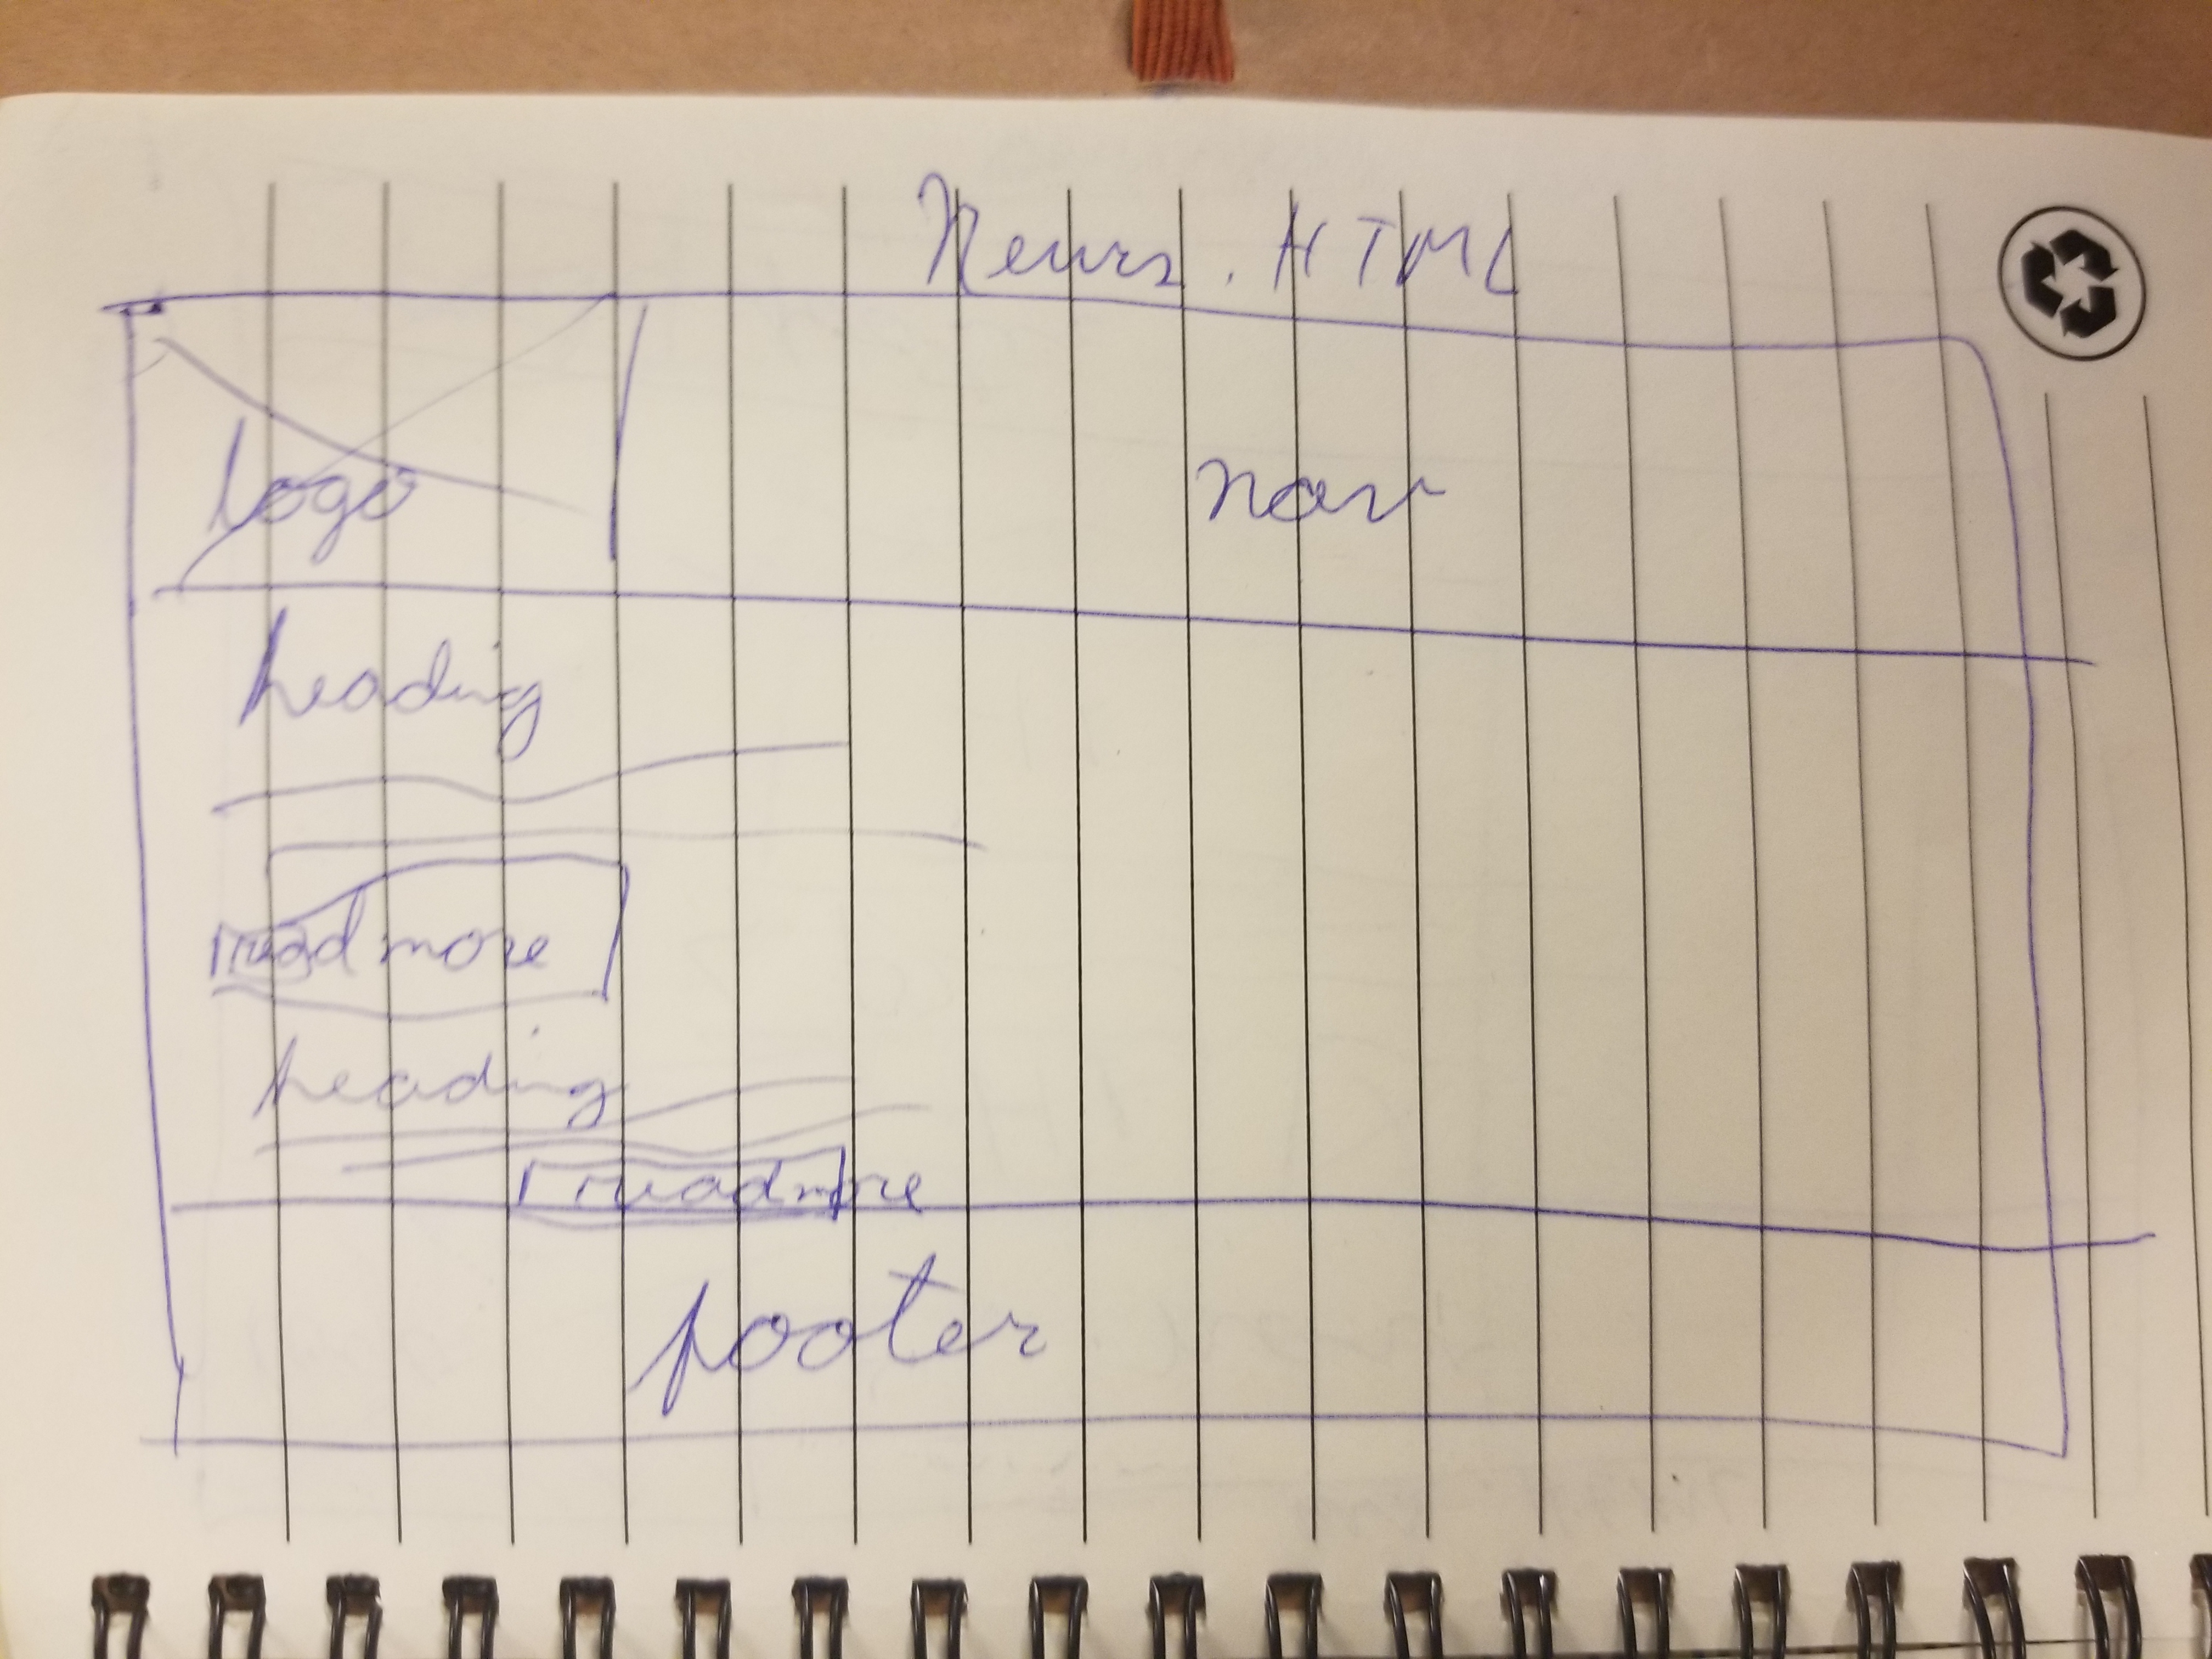 News.HTML
logo
nav
heading
read more
heading
read more
footer